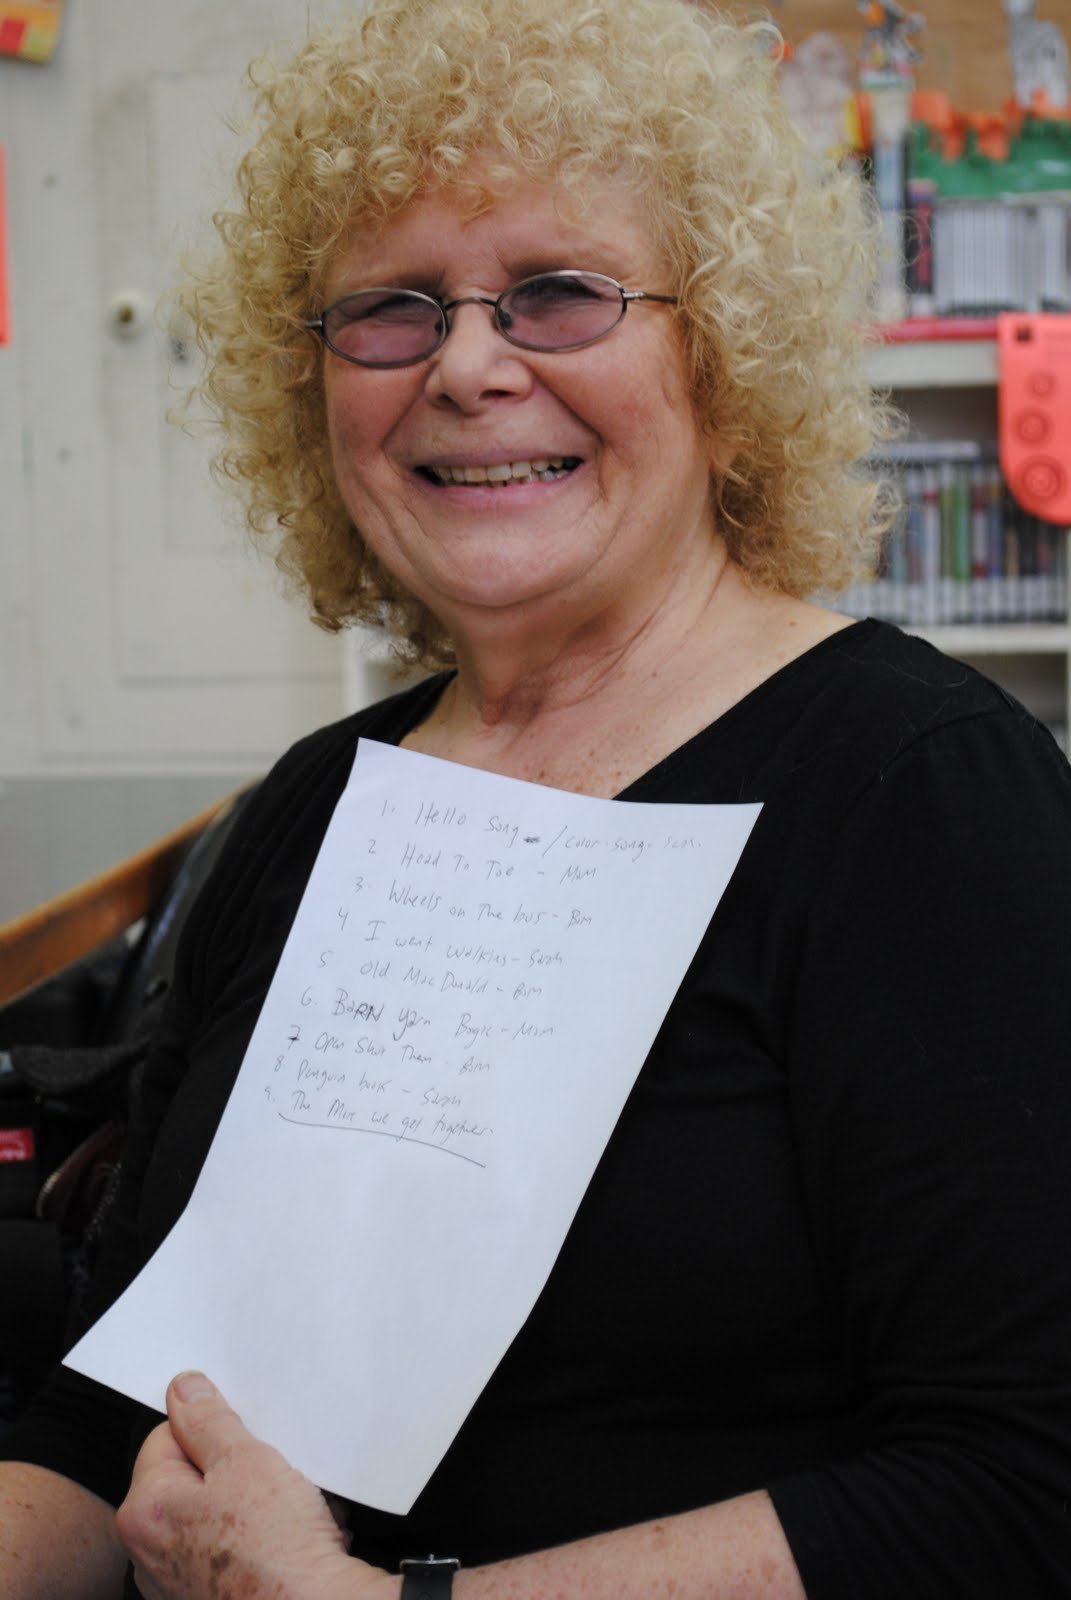 1. Hello Song / color song -
2 Head To Toe - Mom
3. Wheels on The bus - Bom
4 I went walking - Sarah
5 Old MacDonald - Bom
6. BARN Yarn - Mom
7 Open Shut Them - Bom
8 Penguin book - Sarah
9. The More we get together.